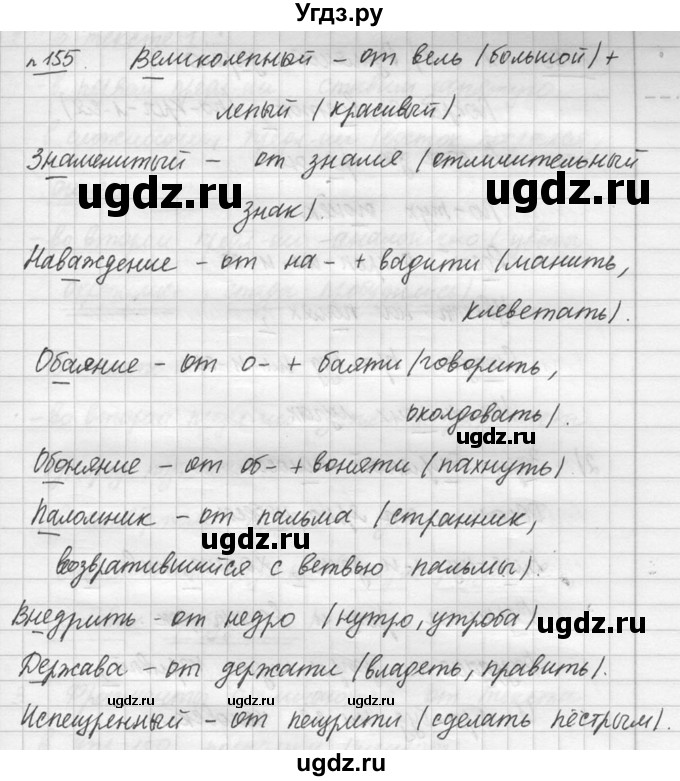 Угдз.ру
№155. Великолепный – от вель (большой) +
лепый (красивый)
Знаменитый – от знамя (отличительный
ugdz.ru ugdz.ru
знак)
Наваждение – от на- + вадити (манить,
клеветать).
Обаяние – от о- + баяти (говорить,
околдовать).
ugdz.ru
Обоняние – от об- + воняти (пахнуть).
Паломник – от пальма (странник,
ugdz.ru
возвратившийся с ветвью пальмы).
Внедрить – от недро (нутро, утроба)
ugdz.ru
Держава – от держати (владеть, править).
ugdz.ru
Испещренный – от пещрити (сделать пёстрым).
ugdz.ru
ugdz.ru